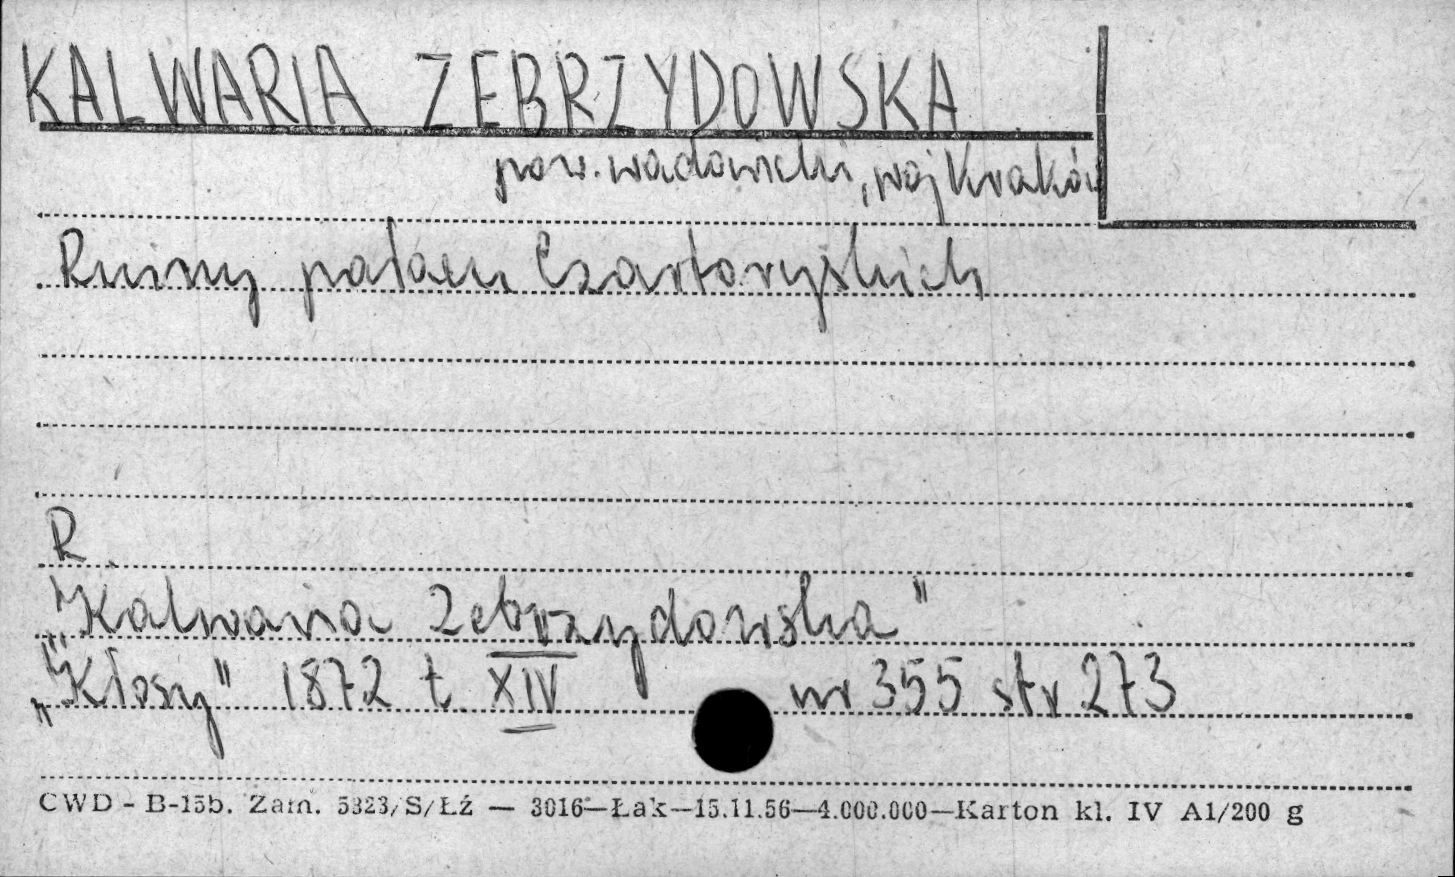 KALWARIA ZEBRZYDOWSKA
pow. wadowicki, woj Kraków
Ruiny pałacu Czartoryskich
R
"Kalwaria Zebrzydowska"
„Kłosy" 1872 t. XIV nr 355 str 273
CWD - B-15b. Zam. 5323/S/Łź — 3016—Łak—15.11.56—4.000.000—Karton kl. IV A1/200 g